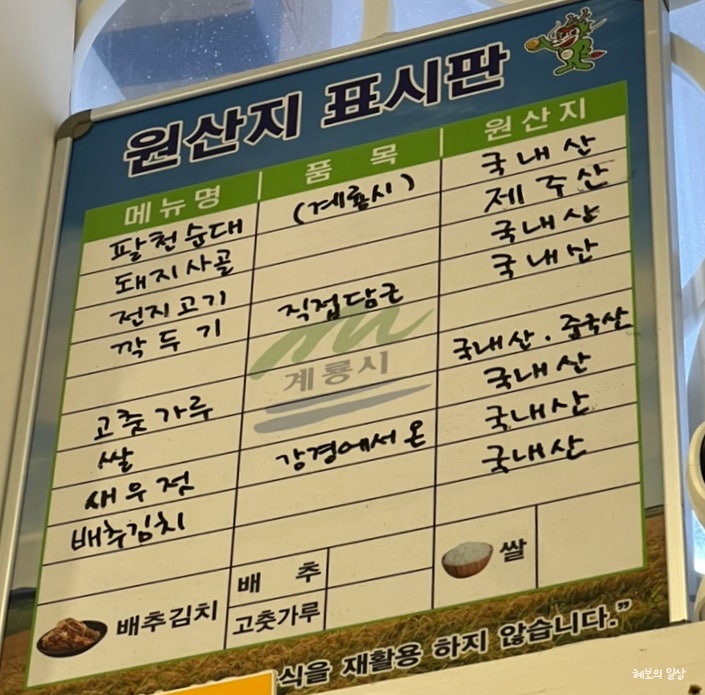 원산지 표시판
메뉴명 품 목 원산지
팔천순대 (계룡시) 국내산
돼지사골 제주산
전지고기 국내산
깍두기 직접담근 국내산
계룡시
고춧가루 국내산·중국산
쌀 국내산
새우젓 강경에서 온 국내산
배추김치 국내산
배추김치 배 추 쌀
고춧가루
식을 재활용 하지 않습니다."
혜보의 일상